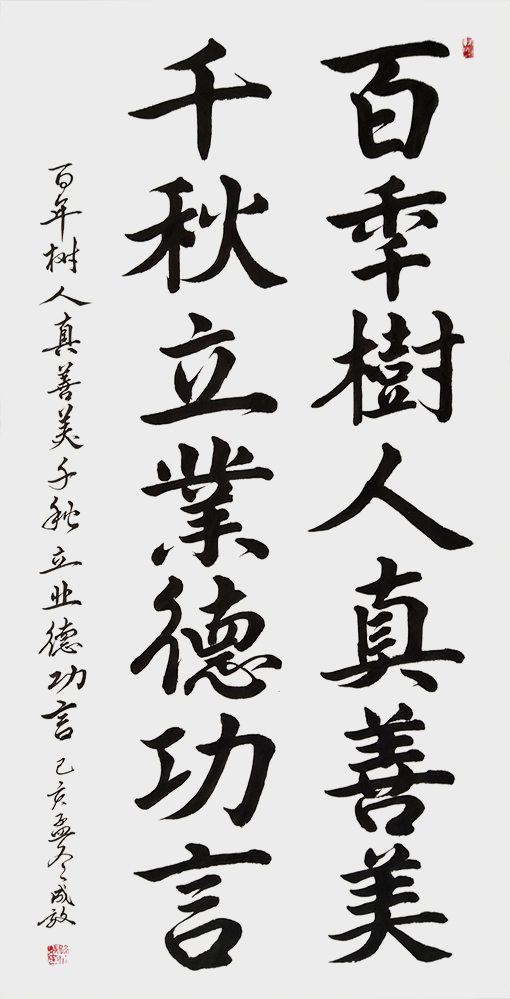 百秊樹人真善美
千秋立業德功言
百年树人真善美千秋立业德功言 己亥孟冬 成